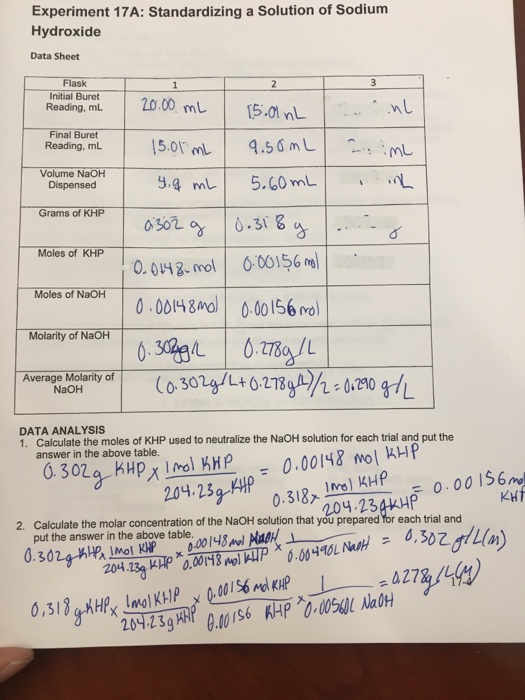 Experiment 17A: Standardizing a Solution of Sodium
Hydroxide
Data Sheet
Flask 1 2 3
Initial Buret Reading, mL 20.00 mL 15.01 mL mL
Final Buret Reading, mL 15.01 mL 9.50 mL mL
Volume NaOH Dispensed mL 5.60 mL
Grams of KHP 0.302 g 0.318 g g
Moles of KHP 0.0148 mol 0.00156 mol
Moles of NaOH 0.00148 mol 0.00156 mol
Molarity of NaOH 0.302 g/L 0.278 g/L
Average Molarity of NaOH (0.302g/L+0.278g/L)/2=0.290 g/L
DATA ANALYSIS
1. Calculate the moles of KHP used to neutralize the NaOH solution for each trial and put the
answer in the above table.
0.302g KHP x 1 mol KHP / 204.23g KHP = 0.00148 mol KHP
0.318 x 1 mol KHP / 204.23g KHP = 0.00156 mol KHP
2. Calculate the molar concentration of the NaOH solution that you prepared for each trial and
put the answer in the above table.
0.302g KHP x 1 mol KHP / 204.23g KHP x 0.00148 mol NaOH / 0.00148 mol KHP x 1 / 0.00490L NaOH = 0.302 g/L(M)
0.318 g KHP x 1 mol KHP / 204.23g KHP x 0.00156 mol KHP / 0.00156 KHP x 1 / 0.00560L NaOH = 0.278g/L(M)